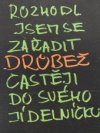 ROZHODL
JSEM SE
ZAŘADIT
DRŮBEŽ
ČASTĚJI
DO SVÉHO
JÍDELNÍČKU